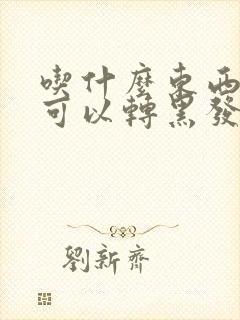 喫什麼東西
可以轉黑發
劉新齊